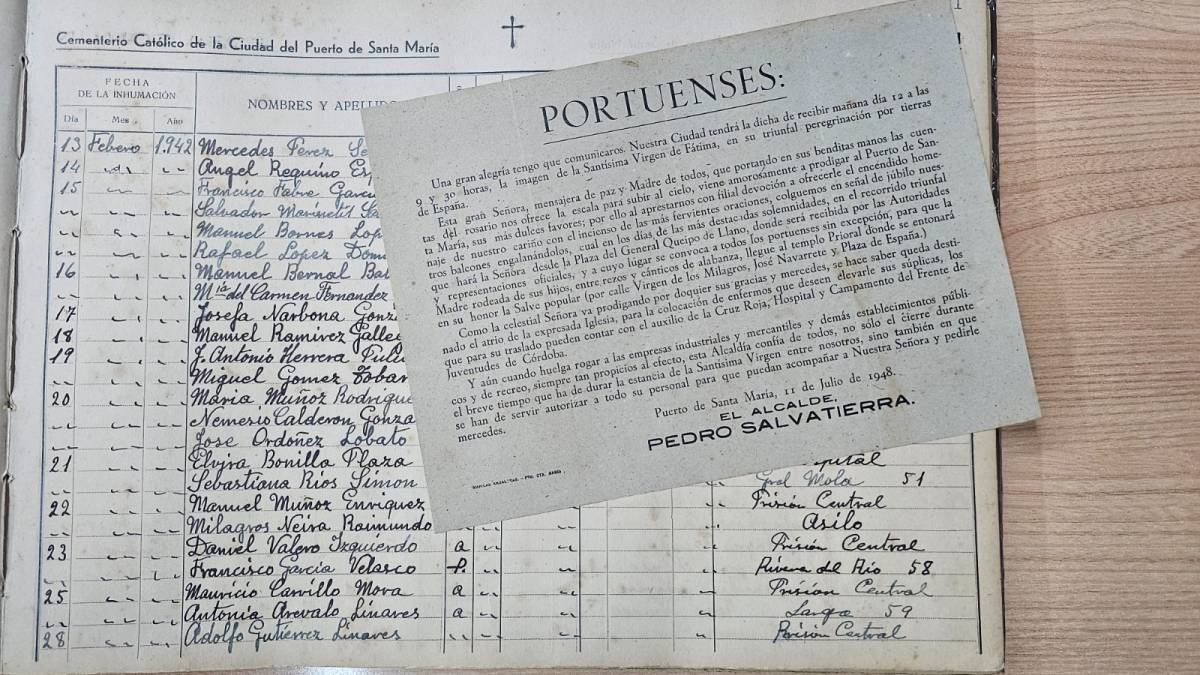 Cementerio Católico de la Ciudad del Puerto de Santa María
FECHA
DE LA INHUMACIÓN
NOMBRES Y APELLIDO
Día Mes Año
13 Febrero 1942 Mercedes Perez
14 Angel Requino
15 Francisco Fabre Garcia
Salvador
Manuel Bornes Lop
Rafael Lopez Dom
16 Manuel Bernal
Mía del Carmen Fernandez
17 Josefa Narbona Gonz
18 Manuel Ramirez Galle
19 J. Antonio Herrera Puli
Miguel Gomez Tobar
20 Maria Muñoz Rodrigue
Nemesio Calderon Gonza
Jose Ordoñez Lobato
21 Elvira Bonilla Plaza
Sebastiana Rios Simon Gral Mola 51
22 Manuel Muñoz Enriquez Prisión Central
Milagros Neira Raimundo Asilo
23 Daniel Valero Izquierdo a Prisión Central
Francisco Garcia Velasco P. Rivera del Rio 58
25 Mauricio Carrillo Mora a Prisión Central
Antonia Arevalo Linares a Larga 59
28 Adolfo Gutierrez Linares Prisión Central
PORTUENSES:
Una gran alegría tengo que comunicaros. Nuestra Ciudad tendrá la dicha de recibir mañana día 12 a las
9 y 30 horas, la imagen de la Santísima Virgen de Fátima, en su triunfal peregrinación por tierras
de España.
Esta gran Señora, mensajera de paz y Madre de todos, que portando en sus benditas manos las cuen-
tas del rosario nos ofrece la escala para subir al cielo, viene amorosamente a prodigar al Puerto de San-
ta María, sus más dulces favores; por ello al aprestarnos con filial devoción a ofrecerle el encendido home-
naje de nuestro cariño con el incienso de las más fervientes oraciones, colguemos en señal de júbilo nues-
tros balcones engalanándolos, cual en los días de las más destacadas solemnidades, en el recorrido triunfal
que hará la Señora desde la Plaza del General Queipo de Llano, donde será recibida por las Autoridades
y representaciones oficiales, y a cuyo lugar se convoca a todos los portuenses sin excepción, para que la
Madre rodeada de sus hijos, entre rezos y cánticos de alabanza, llegue al templo Prioral donde se entonará
en su honor la Salve popular (por calle Virgen de los Milagros, José Navarrete y Plaza de España.)
Como la celestial Señora va prodigando por doquier sus gracias y mercedes, se hace saber queda desti-
nado el atrio de la expresada Iglesia, para la colocación de enfermos que deseen elevarle sus súplicas, los
que para su traslado pueden contar con el auxilio de la Cruz Roja, Hospital y Campamento del Frente de
Juventudes de Córdoba.
Y aún cuando huelga rogar a las empresas industriales y mercantiles y demás establecimientos públi-
cos y de recreo, siempre tan propicios al efecto, esta Alcaldía confía de todos, no sólo el cierre durante
el breve tiempo que ha de durar la estancia de la Santísima Virgen entre nosotros, sino también en que
se han de servir autorizar a todo su personal para que puedan acompañar a Nuestra Señora y pedirle
mercedes.
Puerto de Santa María, 11 de Julio de 1948.
EL ALCALDE,
PEDRO SALVATIERRA.